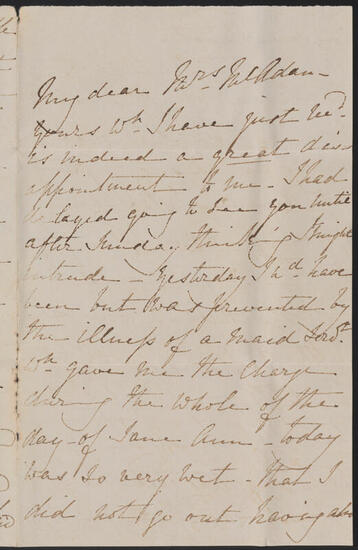 My dear Mrs McAdam -
Yours wh. I have just recd.
is indeed a great dis
appointment to me - I had
delayed going to see you until
after Sunday thinking I might
intrude - Yesterday I wd. have
been but was prevented by
the illness of a maid Servt.
wh. gave me the Charge
during the whole of the
day - of Jane Ann - today
was so very wet - that I
did not go out having also